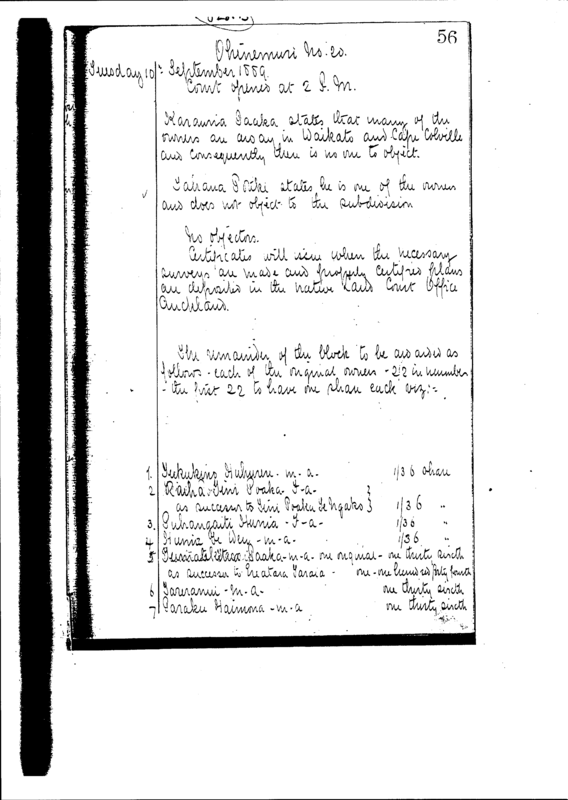 56
Ohinemuri No. 20.
Tuesday 10th September 1889.
Court opened at 2 P.M.
Paaka states that many of the
owners are away in Waikato and Cape Colville
and consequently there is no one to object.
Potiki states he is one of the owners
and does not object to the subdivision
No objectors.
Certificates will issue when the necessary
surveys are made and properly certified plans
are deposited in the Native Land Court Office
Auckland.
The remainder of the block to be awarded as
follows - each of the original owners - 22 in number
- the first 22 to have one share each viz:-
1. - m - a - 1/36 share
2 Raiha Poaka - f - a - }
as successor to Poaka Te Ngako } 1/36 "
3. Hunia - f - a 1/36 "
4 Hunia Te - m - a - 1/36 "
5 Paaka - m - a - one original - one thirty sixth
as successor to Taraia - one - one hundred forty fourth
6 - m - a - one thirty sixth
7 Haimona - m - a one thirty sixth